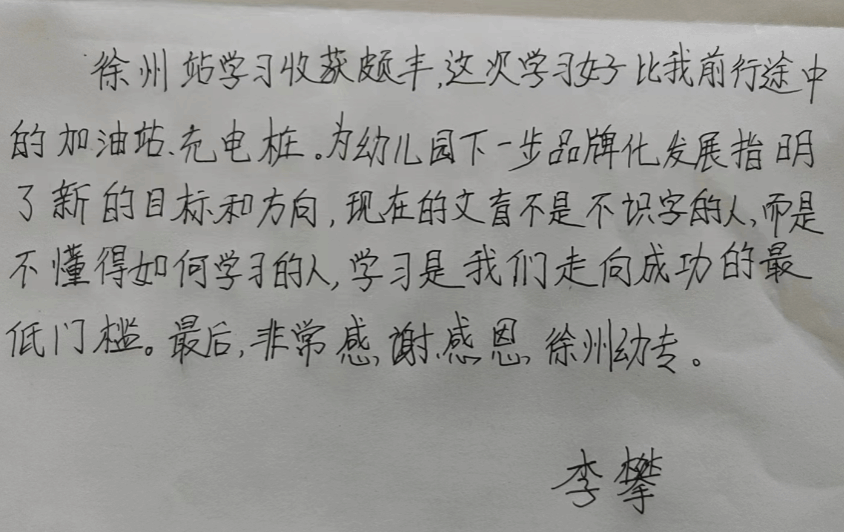 徐州站学习收获颇丰,这次学习好比我前行途中
的加油站、充电桩。为幼儿园下一步品牌化发展指明
了新的目标和方向,现在的文盲不是不识字的人,而是
不懂得如何学习的人,学习是我们走向成功的最
低门槛。最后,非常感谢、感恩徐州幼专。
李攀